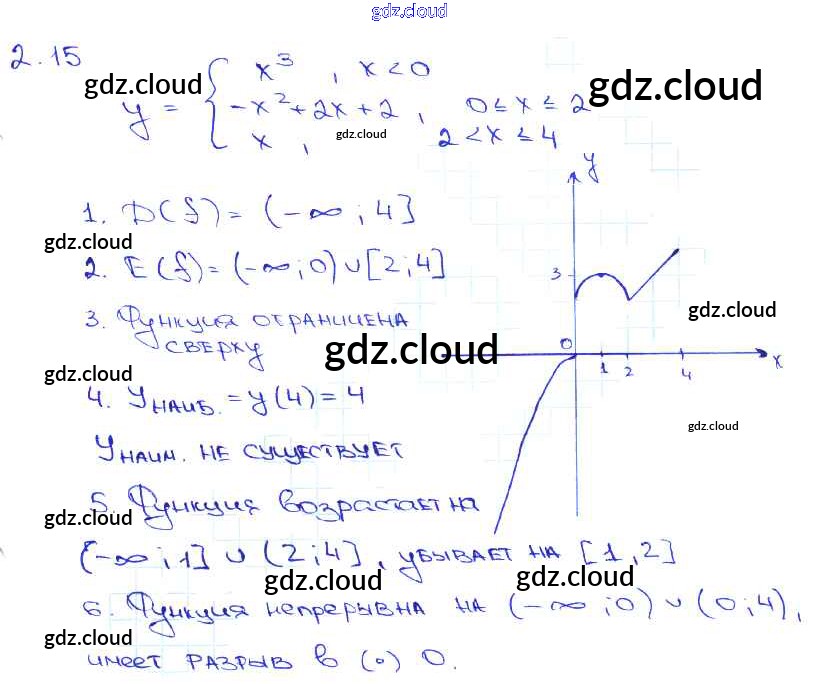 gdz.cloud
2.15
gdz.cloud
y = { x³, x < 0
-x² + 2x + 2, 0 ≤ x ≤ 2
x, 2 < x ≤ 4
gdz.cloud
gdz.cloud
1. D(f) = (-∞; 4]
gdz.cloud
2. E(f) = (-∞; 0) ∪ [2; 4]
3. Функция ограничена
сверху
gdz.cloud
gdz.cloud
4. y наиб. = y(4) = 4
y наим. не существует
5. Функция возрастает на
gdz.cloud
(-∞; 1] ∪ (2; 4], убывает на [1, 2]
gdz.cloud
gdz.cloud
6. Функция непрерывна на (-∞; 0) ∪ (0; 4),
gdz.cloud
имеет разрыв в (·) 0.
y
3
gdz.cloud
0
1 2 4 x
gdz.cloud